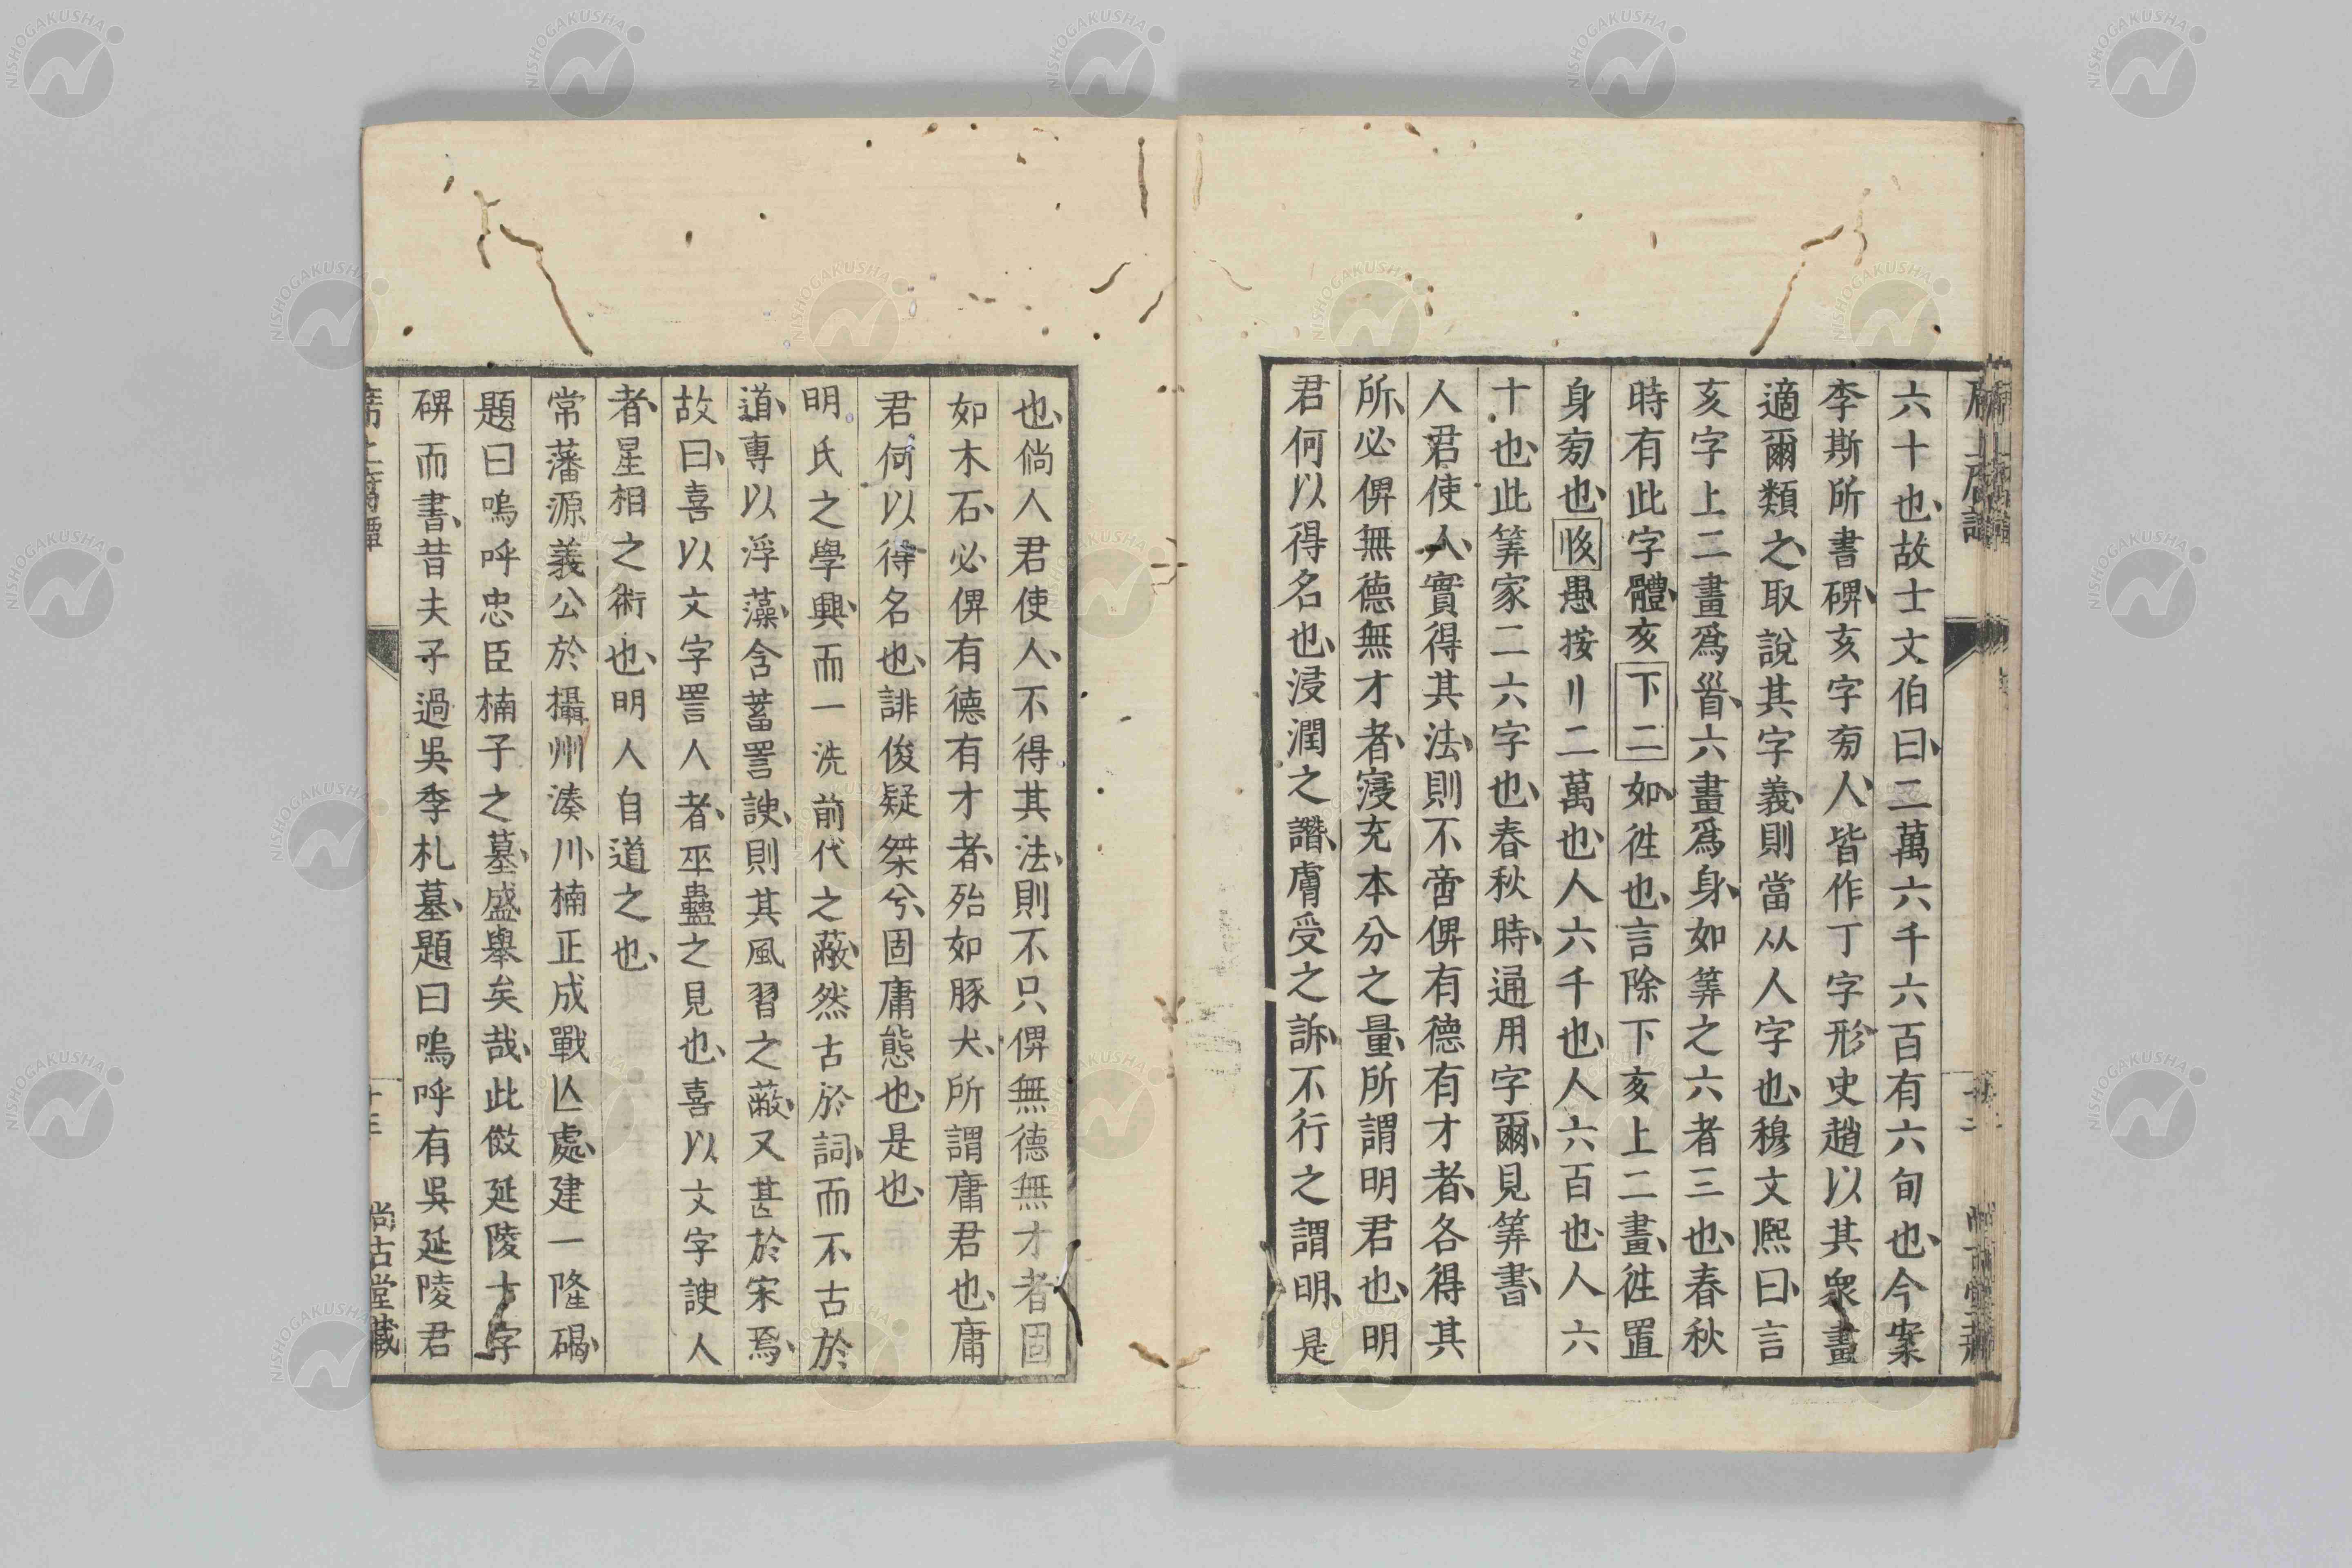 六十也、故士文伯曰、二萬六千六百有六旬也、今案
李斯所書碑、亥字旁人、皆作丁字形、史趙以其衆畫
適爾類之、取說其字義、則當从人字也、穆文熈曰、言
亥字上二畫爲首、六畫爲身、如筭之六者三也、春秋
時有此字體、亥下二如、徃也、言除下亥上二畫、徃置
身旁也、愚按〢二萬也、人六千也、人六百也、人六
十也、此筭家二六字也、春秋時、通用字爾、見筭書、
人君使人、實得其法、則不啻俾有德有才者、各得其
所、必俾無德無才者、寖充本分之量、所謂明君也、明
君何以得名也、浸潤之譖、膚受之訴、不行之謂明、是
也、倘人君使人、不得其法、則不只俾無德無才者固
如木石、必俾有德有才者、殆如豚犬、所謂庸君也、庸
君何以得名也、誹俊疑桀兮、固庸態也、是也、
明氏之學興、而一洗前代之蔽、然古於詞、而不古於
道、專以浮藻、含蓄詈諛、則其風習之蔽、又甚於宋焉、
故曰、喜以文字詈人者、巫蠱之見也、喜以文字諛人
者、星相之術也、明人自道之也、
常藩源義公於攝州湊川楠正成戰亾處、建一隆碣、
題曰嗚呼忠臣楠子之墓、盛舉矣哉、此倣延陵十字
碑而書、昔夫子過吳季札墓、題曰嗚呼有吳延陵君
尚古堂藏
NISHOGAKUSHA